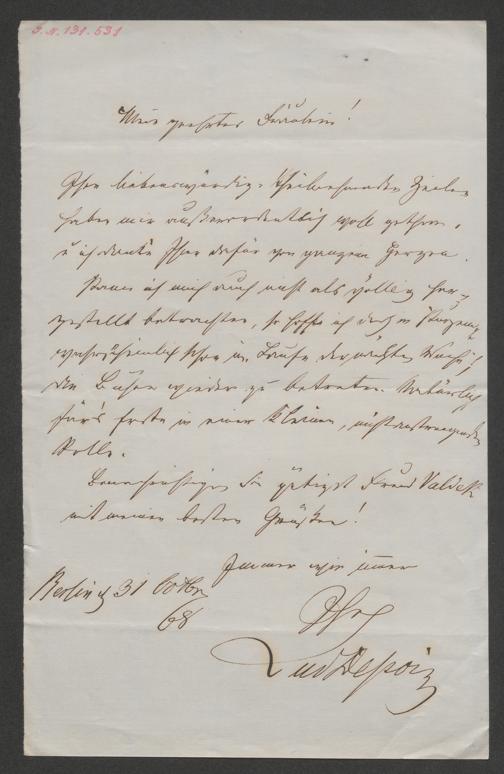 J.N. 131.531
Mein geehrtes Fräulein!
Ihre liebenswürdig-theilnehmenden Zeilen
haben mir außerordentlich wohl gethan,
u ich danke Ihnen dafür von ganzem Herzen.
Kann ich mich auch nicht als völlig her-
gestellt betrachten, so hoffe ich doch in
wahrscheinlich schon im Laufe der nächsten Woche
die Bühne wieder zu betreten. Natürlich
für's Erste in einer kleinen, nicht anstrengenden
Rolle.
Sie gütigst Freund Valdek
mit meinen besten Grüßen!
Immer wie immer
Berlin d 31 Octbr
68
Ihr
Lud Dessoir